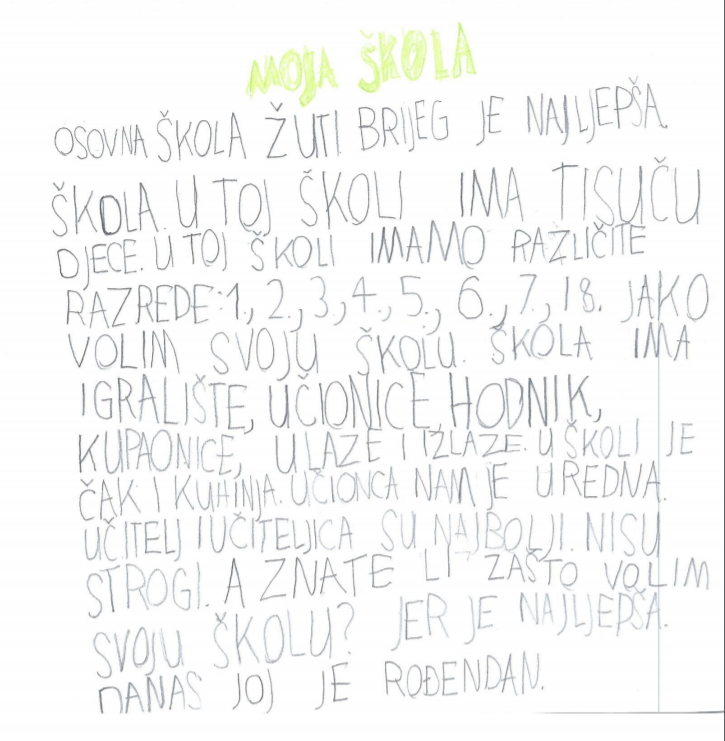 MOJA ŠKOLA
OSOVNA ŠKOLA ŽUTI BRIJEG JE NAJLJEPŠA
ŠKOLA. U TOJ ŠKOLI IMA TISUČU
DJECE. U TOJ ŠKOLI IMAMO RAZLIČITE
RAZREDE: 1., 2., 3., 4., 5., 6., 7., I 8. JAKO
VOLIM SVOJU ŠKOLU. ŠKOLA IMA
IGRALIŠTE, UČIONICE, HODNIK,
KUPAONICE, ULAZE I IZLAZE. U ŠKOLI JE
ČAK I KUHINJA. UČIONCA NAM JE UREDNA.
UČITELJ I UČITELJICA SU NAJBOLJI. NISU
STROGI. A ZNATE LI ZAŠTO VOLIM
SVOJU ŠKOLU? JER JE NAJLJEPŠA.
DANAS JOJ JE ROĐENDAN.